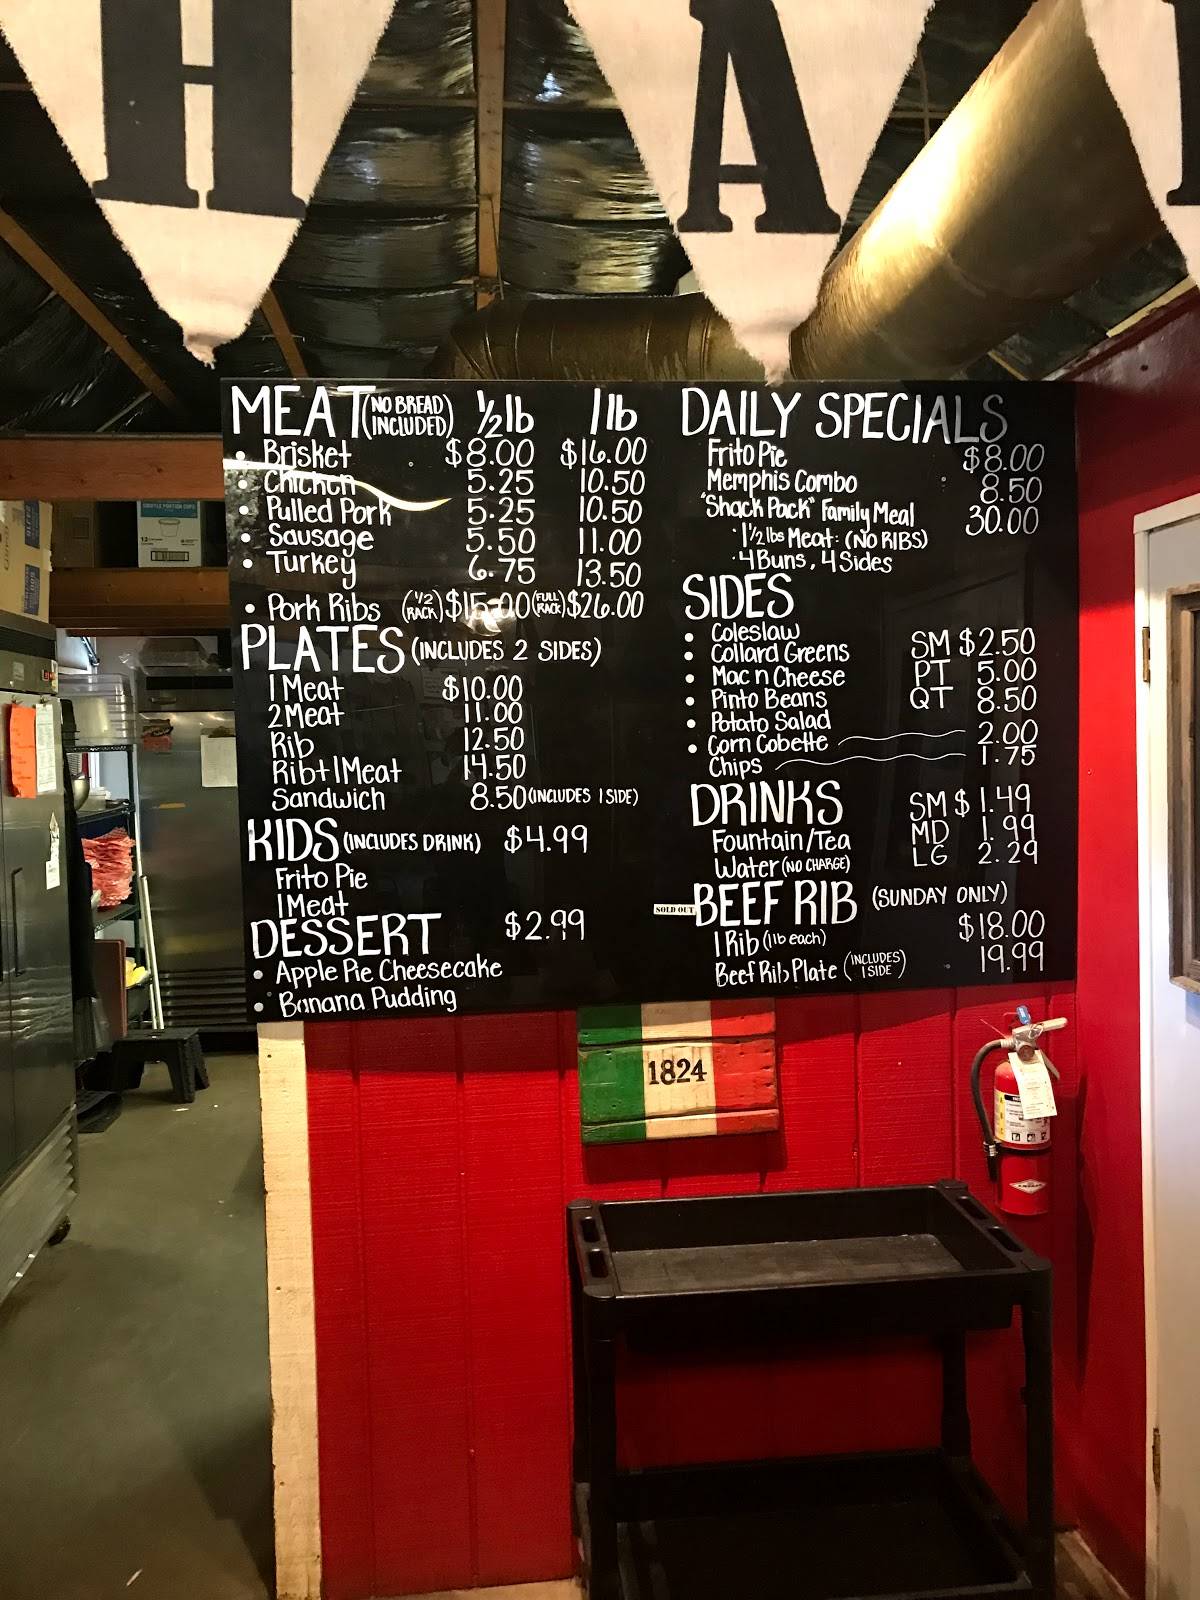 H A
MEAT (NO BREAD INCLUDED) ½lb 1lb
• Brisket $8.00 $16.00
• Chicken 5.25 10.50
• Pulled Pork 5.25 10.50
• Sausage 5.50 11.00
• Turkey 6.75 13.50
• Pork Ribs (½ RACK) $15.00 (FULL RACK) $26.00
PLATES (INCLUDES 2 SIDES)
1 Meat $10.00
2 Meat 11.00
Rib 12.50
Rib+1Meat 14.50
Sandwich 8.50 (INCLUDES 1 SIDE)
KIDS (INCLUDES DRINK) $4.99
Frito Pie
1Meat
DESSERT $2.99
• Apple Pie Cheesecake
• Banana Pudding
DAILY SPECIALS
Frito Pie $8.00
Memphis Combo 8.50
"Shack Pack" Family Meal 30.00
· 1½ lbs Meat: (NO RIBS)
· 4 Buns, 4 Sides
SIDES
• Coleslaw SM $2.50
• Collard Greens PT 5.00
• Mac n Cheese QT 8.50
• Pinto Beans
• Potato Salad
• Corn Cobette 2.00
Chips 1.75
DRINKS SM $1.49
Fountain/Tea MD 1.99
Water (NO CHARGE) LG 2.29
SOLD OUT BEEF RIB (SUNDAY ONLY)
1 Rib (1lb each) $18.00
Beef Rib Plate (INCLUDES 1 SIDE) 19.99
1824